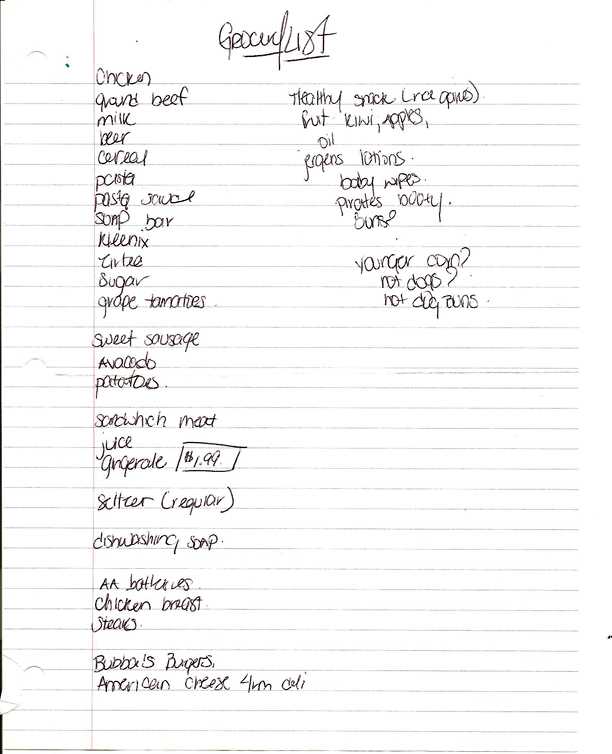 Grocery List
Chicken
ground beef
milk
beer
cereal
pasta
pasta sauce
soap bar
Kleenix
Sugar
grape tomatoes.
sweet sausage
Avacado
patatoes.
sandwhich meat
juice
gingerale $1.99
Seltzer (regular)
dishwashing soap.
AA batteries
Chicken breast.
Steaks.
Bubba's Burgers,
American Cheese 4rm deli
Healthy snack (rice
fruit kiwi, apples,
oil
jergens lotions.
baby wipes.
pirates booty.
buns?
corn?
hot dogs?
hot dog buns.